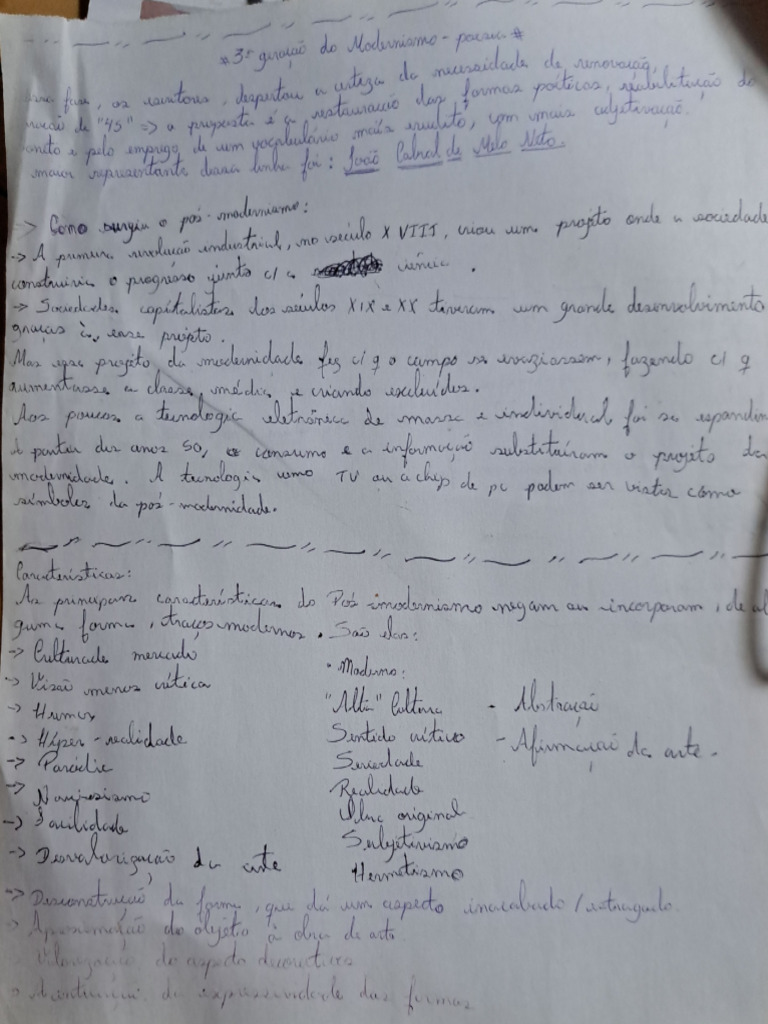 * 3ª geração do Modernismo - poesia *
fase, os escritores, despertou a certeza da necessidade de renovação,
de "45" => a proposta é a restauração das formas poéticas, reabilitação do
e pelo emprego de um vocabulário mais erudito, com mais adjetivação.
maior representante dessa linha foi: João Cabral de Melo Neto.
-> Como surgiu o pós-modernismo:
-> A primeira revolução industrial, no século XVIII, criou um projeto onde a sociedade
construiria o progresso junto c/ a ciência.
-> Sociedades capitalistas dos séculos XIX e XX tiveram um grande desenvolvimento
graças à, esse projeto.
Mas esse projeto da modernidade fez c/ q o campo se evaziassem, fazendo c/ q
aumentasse a classe, média, e criando excluídos.
Aos poucos a tecnologia eletrônica de massa e individual foi se espandin
A partir dos anos 50, o consumo e a informação substituíram o projeto da
modernidade. A tecnologia como TV ou a chip de pc podem ser vistas como
símbolos da pós-modernidade.
Características:
As principais características do Pós-modernismo negam ou incorporam, de al
guma forma, traços modernos. São elas:
-> Cultura de mercado
-> Visão menos crítica
-> Humor
-> Hiper-realidade
-> Paródia
->
-> Facilidade
-> Desvalorização da arte
• Moderno:
"Alta" Cultura
Sentido crítico
Seriedade
Realidade
Obra original
Subjetivismo
Hermetismo
- Abstração
- Afirmação da arte.
-> Desconstrução da forma, que dá um aspecto inacabado/estragado.
-> Aproximação do objeto à obra de arte
-> Valorização do aspecto decorativo
-> da expressividade das formas